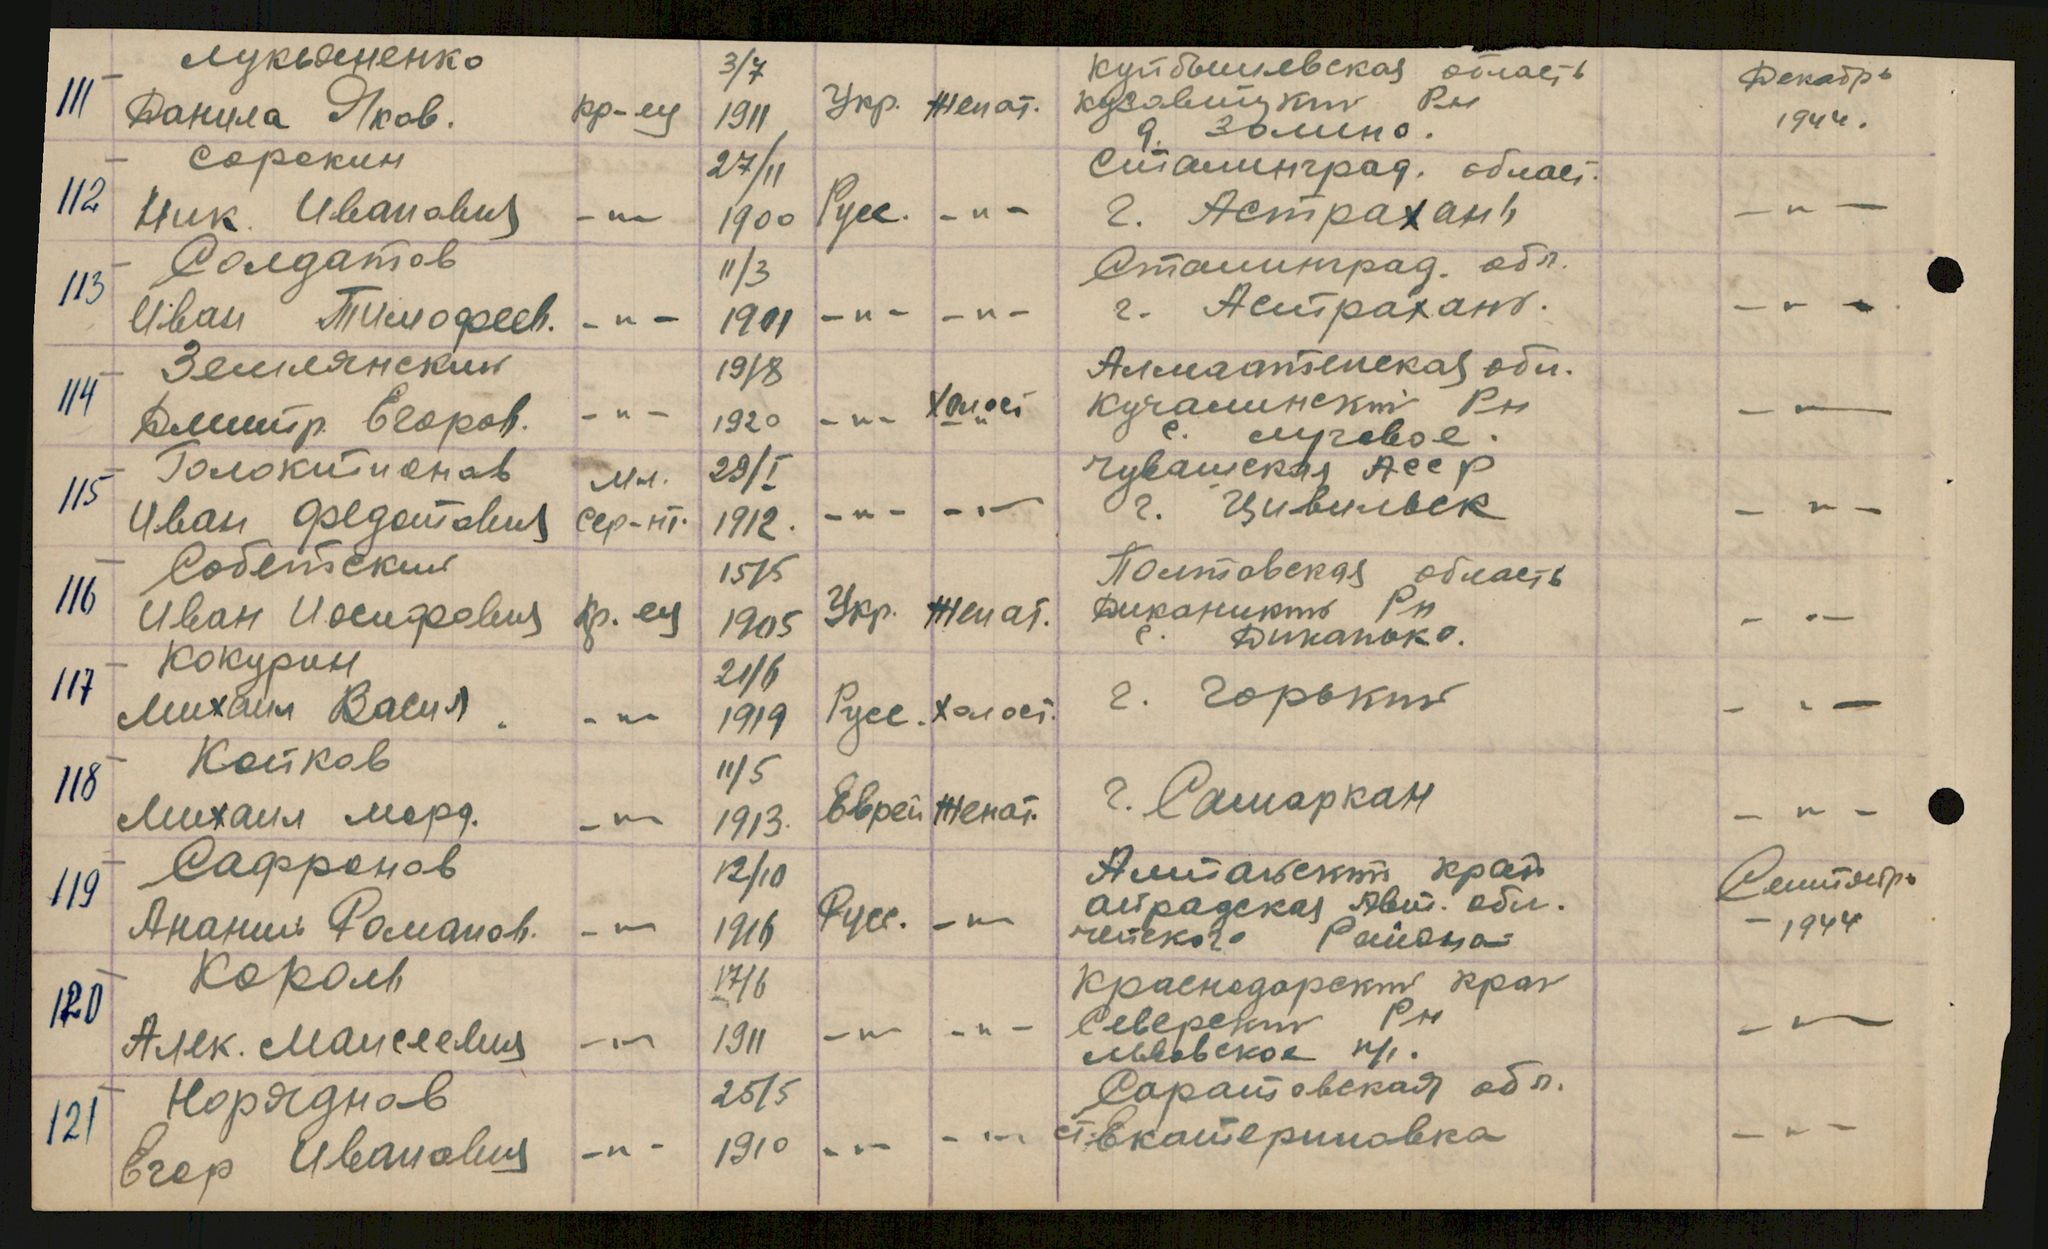 111 Лукьяненко 3/7 Куйбышевская область Декабрь
Данила Яков. кр-ец 1911 Укр. Женат. Кузоватский Рн 1944.
д. Золино.
112 Сорокин 27/11 Сталинград. област.
Ник. Иванович -"- 1900 Русс. -"- г. Астрахань -"-
113 Солдатов 11/3 Сталинград. обл.
Иван Тимофеев. -"- 1901 -"- -"- г. Астрахань. -"-
114 Землянский 19/8 Алмаатенская обл.
Дмитр. Егоров. -"- 1920 -"- Холост Кугалинский Рн -"-
с. Луговое.
115 Голоктионов мл. 29/I Чувашская АССР
Иван Федотович сер-нт. 1912. -"- -"- г. Цивильск -"-
116 Собетский 15/5 Полтовская область
Иван Иосифович Кр. ец 1905 Укр. Женат. Диканикий Рн -"-
с. Диканько.
117 Кокурин 21/6
Михаил Васил. -"- 1919 Русс. Холост. г. Горький -"-
118 Котков 11/5
Михаил Морд. -"- 1913. Еврей Женат. г. Самаркан -"-
119 Сафронов 12/10 Алтайский край Сентябрь
Ананий Романов. -"- 1916 Русс. -"- Авт. обл. - 1944
Района
120 Король 17/6 Краснодарский край
Алек. Моисеевич -"- 1911 -"- -"- Северский Рн -"-
Львовское п/.
121 Наряднов 25/5 Саратовская обл.
Егор Иванович -"- 1910 -"- -"- ст. Екатериновка -"-